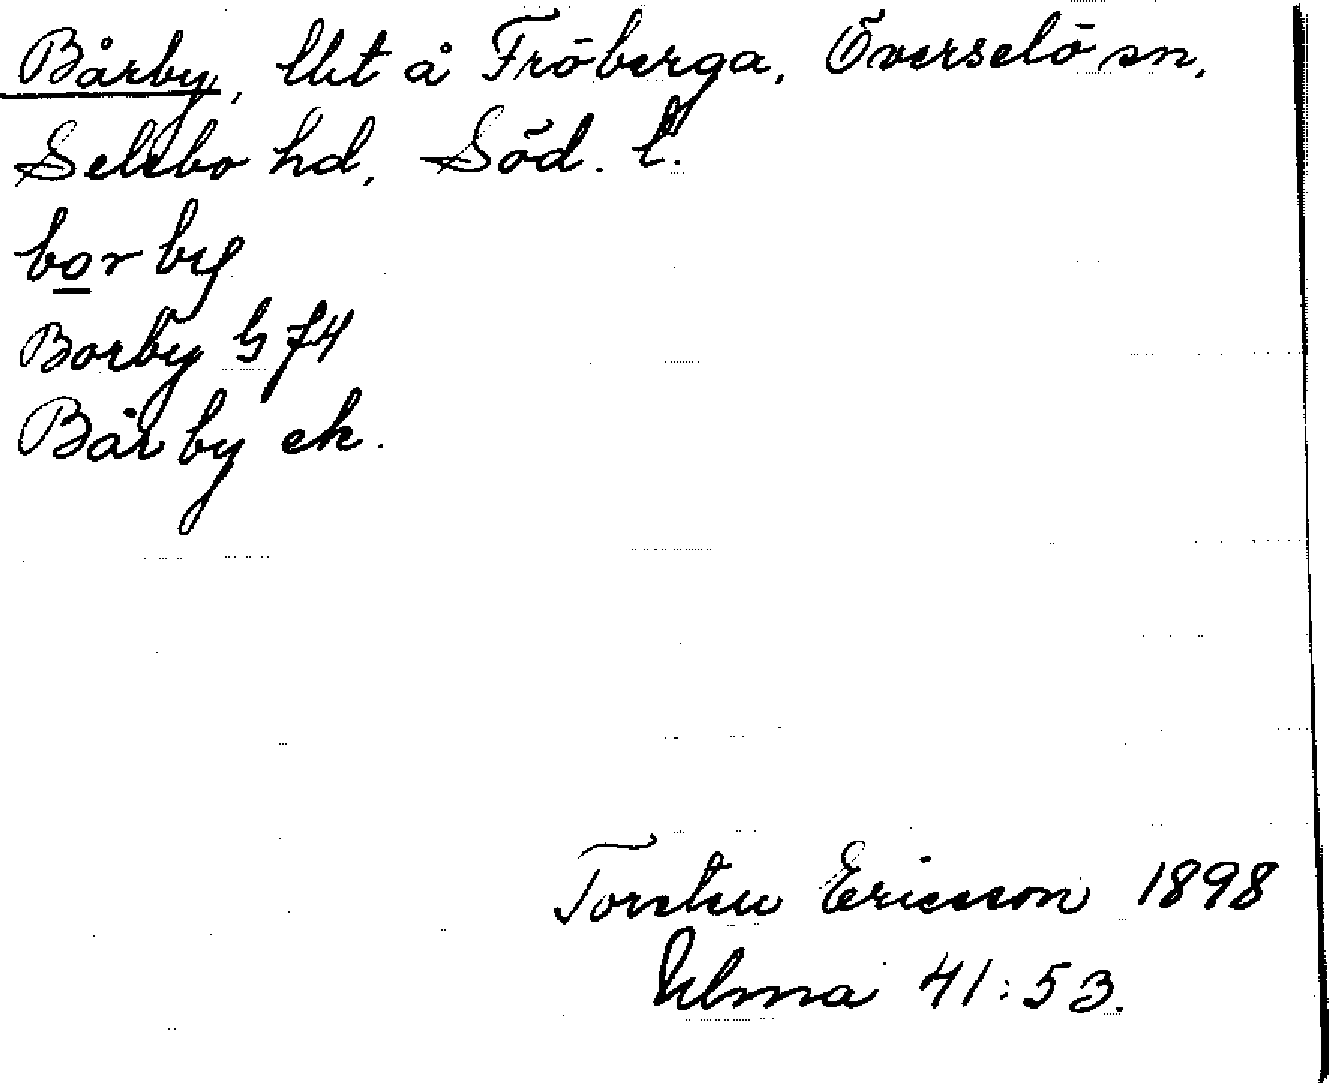 Bårby, lht å Fröberga, Överselö sn,
Selebo hd, Söd. l.
bor by
Borby G 74
Bårby ek.
Torsten Ericsson 1898
Ulma 41:53.